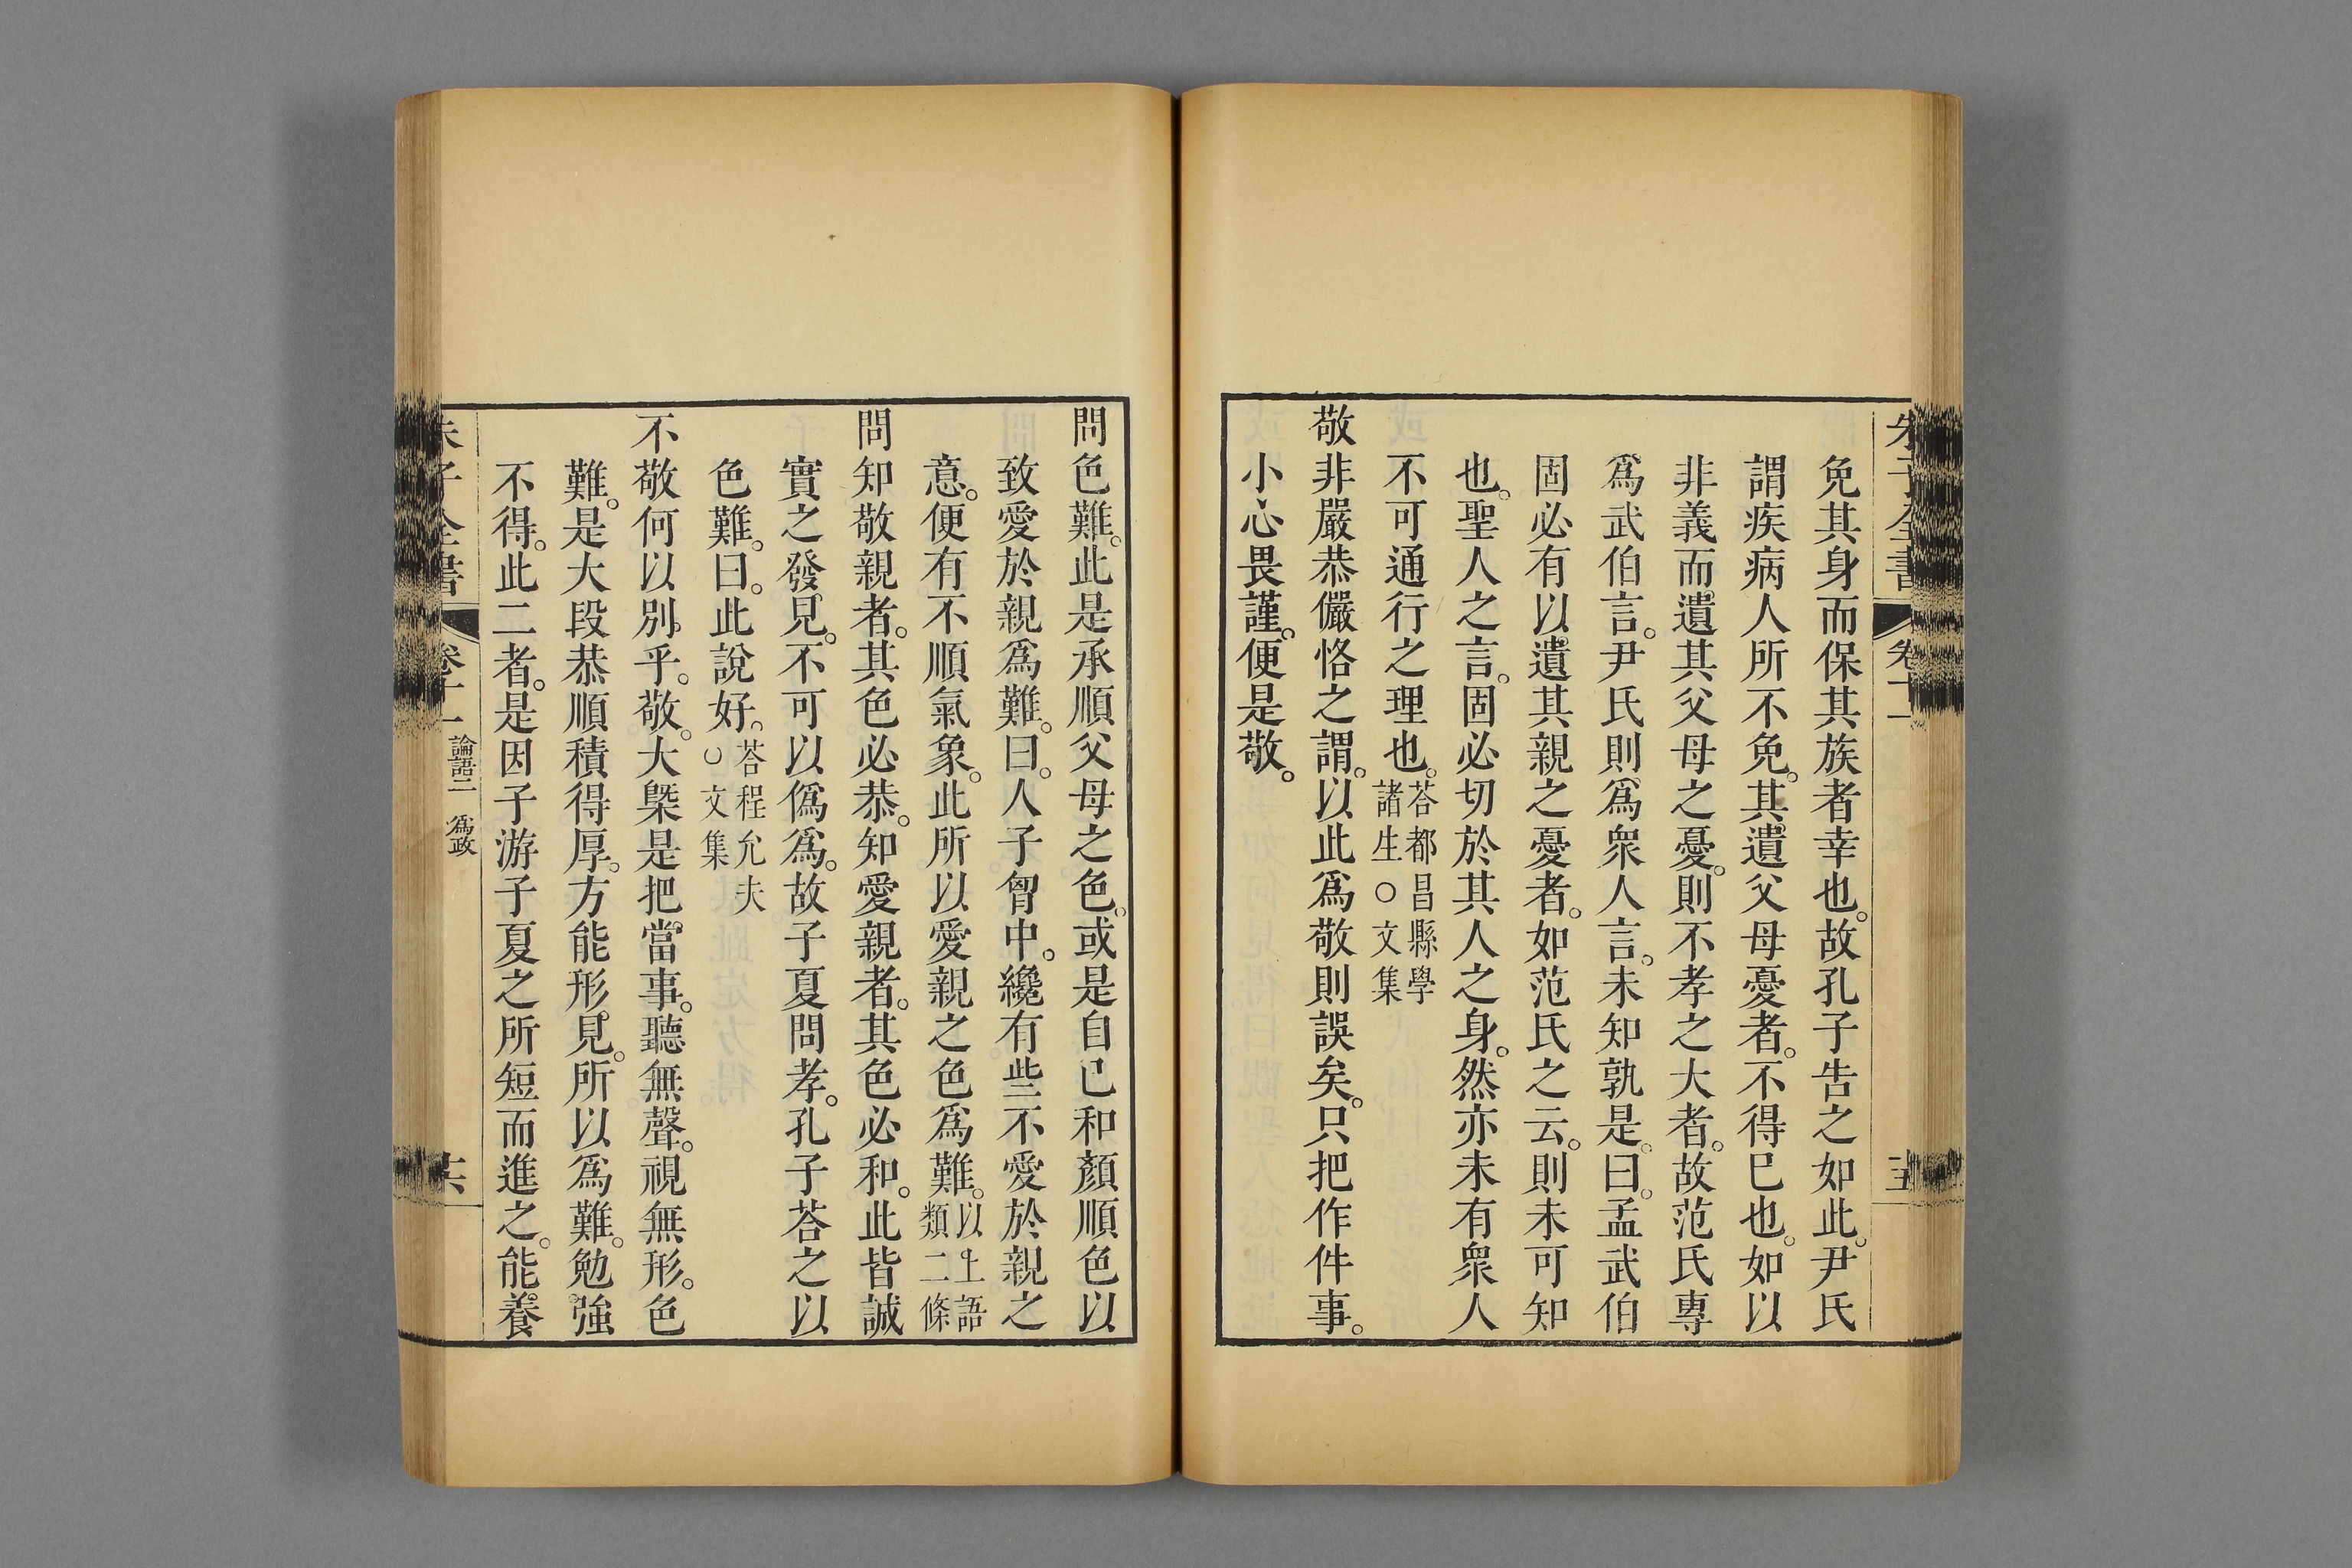 朱子全書 卷十一 十五
免其身而保其族者幸也。故孔子告之如此。尹氏
謂疾病人所不免。其遺父母憂者。不得已也。如以
非義而遺其父母之憂。則不孝之大者。故范氏專
爲武伯言。尹氏則爲衆人言。未知孰是。曰。孟武伯
固必有以遺其親之憂者。如范氏之云。則未可知
也。聖人之言。固必切於其人之身。然亦未有衆人
不可通行之理也。荅都昌縣學諸生○文集
敬非嚴恭儼恪之謂。以此爲敬則誤矣。只把作件事。
小心畏謹。便是敬。
問色難。此是承順父母之色。或是自己和顏順色以
致愛於親爲難。曰。人子胷中。纔有些不愛於親之
意。便有不順氣象。此所以愛親之色爲難。以上語類二條
問知敬親者。其色必恭。知愛親者。其色必和。此皆誠
實之發見。不可以僞爲。故子夏問孝。孔子荅之以
色難。曰。此說好。荅程允夫○文集
不敬何以別乎。敬。大槩是把當事。聽無聲。視無形。色
難。是大段恭順積得厚。方能形見。所以爲難。勉強
不得。此二者。是因子游子夏之所短而進之。能養
朱子全書 卷十一 論語二 爲政 十六